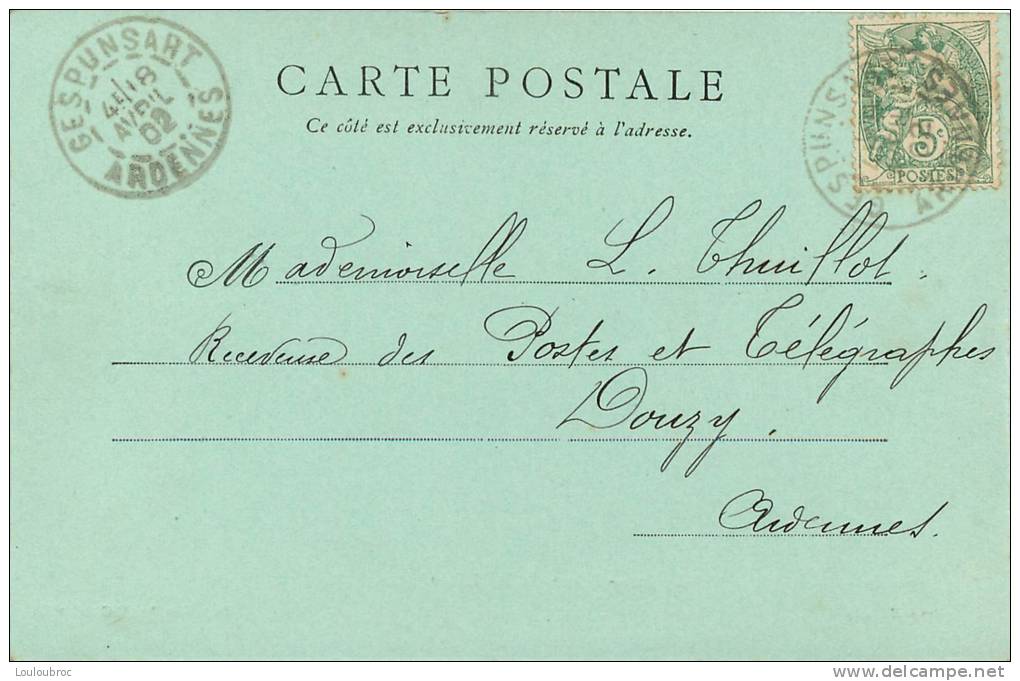 GESPUNSART
4E/18
AVRIL
02
ARDENNES
CARTE POSTALE
Ce côté est exclusivement réservé à l'adresse.
5c
POSTES
GESPUNSART
ARDENNES
Mademoiselle L. Thuillot.
Receveuse des Postes et Télégraphes
Douzy.
Ardennes.
Louloubroc
www.delcampe.net